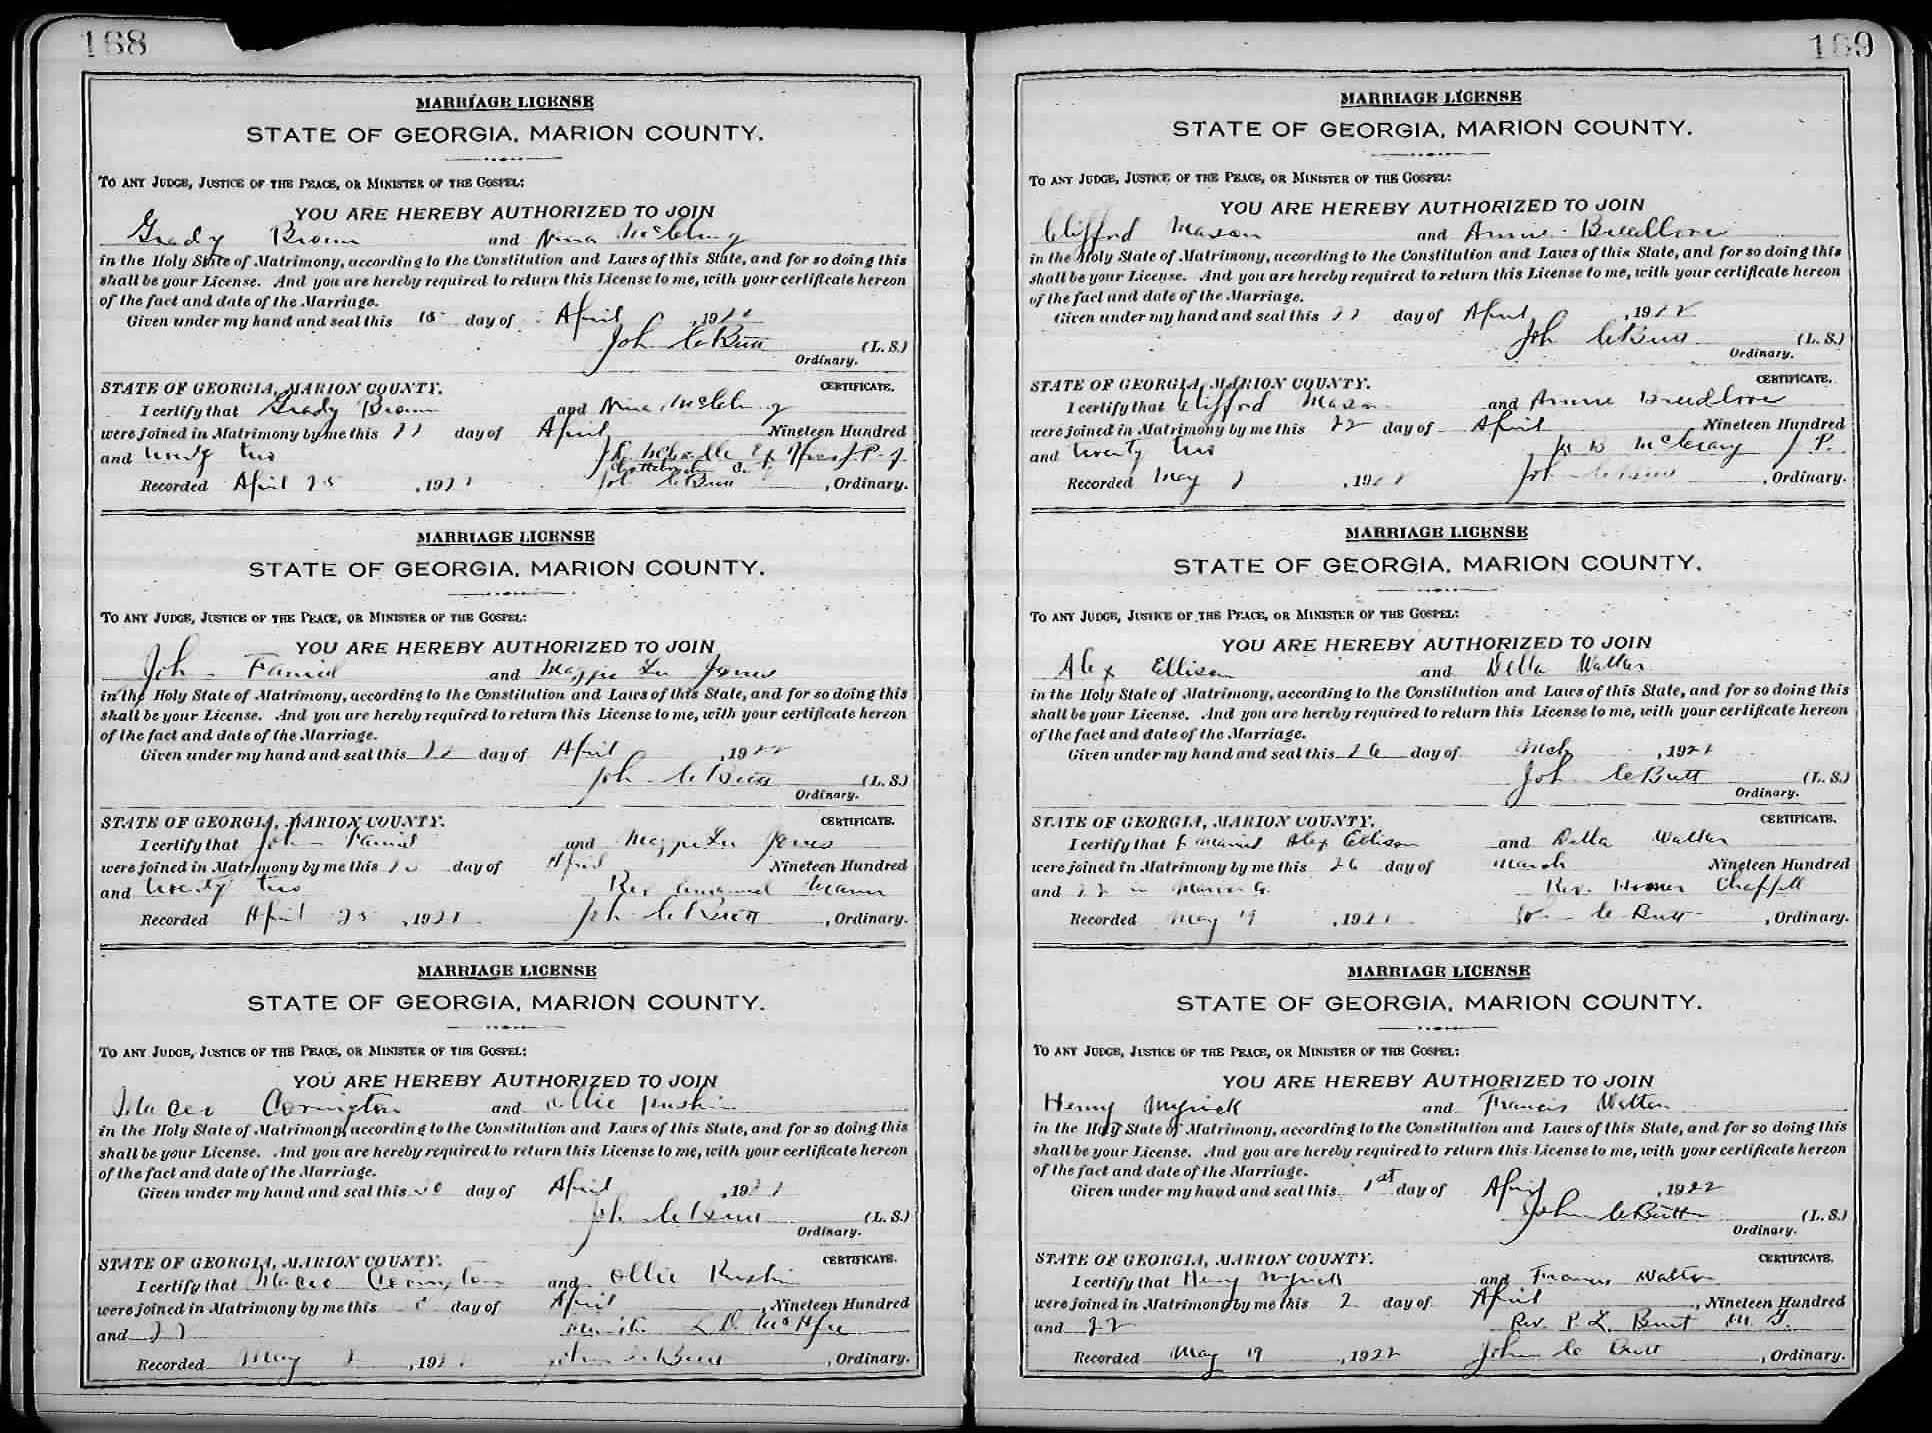 168
MARRIAGE LICENSE
STATE OF GEORGIA, MARION COUNTY.
TO ANY JUDGE, JUSTICE OF THE PEACE, OR MINISTER OF THE GOSPEL:
YOU ARE HEREBY AUTHORIZED TO JOIN
Grady Brown and Nina McClung
in the Holy State of Matrimony, according to the Constitution and Laws of this State, and for so doing this
shall be your License. And you are hereby required to return this License to me, with your certificate hereon
of the fact and date of the Marriage.
Given under my hand and seal this 15 day of April, 1922
John C Butt (L. S.)
Ordinary.
STATE OF GEORGIA, MARION COUNTY. CERTIFICATE.
I certify that Grady Brown and Nina McClung
were joined in Matrimony by me this 22 day of April Nineteen Hundred
and twenty two
Recorded April 25, 1922 John C Butt, Ordinary.
MARRIAGE LICENSE
STATE OF GEORGIA, MARION COUNTY.
TO ANY JUDGE, JUSTICE OF THE PEACE, OR MINISTER OF THE GOSPEL:
YOU ARE HEREBY AUTHORIZED TO JOIN
John and Maggie Lu Jones
in the Holy State of Matrimony, according to the Constitution and Laws of this State, and for so doing this
shall be your License. And you are hereby required to return this License to me, with your certificate hereon
of the fact and date of the Marriage.
Given under my hand and seal this 22 day of April, 1922
John C Butt (L. S.)
Ordinary.
STATE OF GEORGIA, MARION COUNTY. CERTIFICATE.
I certify that John and Maggie Lu Jones
were joined in Matrimony by me this day of April Nineteen Hundred
and twenty two Rev
Recorded April 25, 1922 John C Butt, Ordinary.
MARRIAGE LICENSE
STATE OF GEORGIA, MARION COUNTY.
TO ANY JUDGE, JUSTICE OF THE PEACE, OR MINISTER OF THE GOSPEL:
YOU ARE HEREBY AUTHORIZED TO JOIN
Maceo Covington and Ollie Rushin
in the Holy State of Matrimony, according to the Constitution and Laws of this State, and for so doing this
shall be your License. And you are hereby required to return this License to me, with your certificate hereon
of the fact and date of the Marriage.
Given under my hand and seal this day of April, 1922
John C Butt (L. S.)
Ordinary.
STATE OF GEORGIA, MARION COUNTY. CERTIFICATE.
I certify that Maceo Covington and Ollie Rushin
were joined in Matrimony by me this day of April, Nineteen Hundred
and 22
Recorded May, 1922 John C Butt, Ordinary.
169
MARRIAGE LICENSE
STATE OF GEORGIA, MARION COUNTY.
TO ANY JUDGE, JUSTICE OF THE PEACE, OR MINISTER OF THE GOSPEL:
YOU ARE HEREBY AUTHORIZED TO JOIN
Clifford Mason and Annie Breedlove
in the Holy State of Matrimony, according to the Constitution and Laws of this State, and for so doing this
shall be your License. And you are hereby required to return this License to me, with your certificate hereon
of the fact and date of the Marriage.
Given under my hand and seal this 22 day of April, 1922
John C Butt (L. S.)
Ordinary.
STATE OF GEORGIA, MARION COUNTY. CERTIFICATE.
I certify that Clifford Mason and Annie Breedlove
were joined in Matrimony by me this 22 day of April Nineteen Hundred
and twenty two McCrary J P.
Recorded May 2, 1922 John C Butt, Ordinary.
MARRIAGE LICENSE
STATE OF GEORGIA, MARION COUNTY.
TO ANY JUDGE, JUSTICE OF THE PEACE, OR MINISTER OF THE GOSPEL:
YOU ARE HEREBY AUTHORIZED TO JOIN
Alex Ellison and Della Walker
in the Holy State of Matrimony, according to the Constitution and Laws of this State, and for so doing this
shall be your License. And you are hereby required to return this License to me, with your certificate hereon
of the fact and date of the Marriage.
Given under my hand and seal this 26 day of Mch, 1922
John C Butt (L. S.)
Ordinary.
STATE OF GEORGIA, MARION COUNTY. CERTIFICATE.
I certify that I married Alex Ellison and Della Walker
were joined in Matrimony by me this 26 day of March Nineteen Hundred
and 22 in Marion Co. Rev. Homer Chappell
Recorded May 19, 1922 John C Butt, Ordinary.
MARRIAGE LICENSE
STATE OF GEORGIA, MARION COUNTY.
TO ANY JUDGE, JUSTICE OF THE PEACE, OR MINISTER OF THE GOSPEL:
YOU ARE HEREBY AUTHORIZED TO JOIN
Henry Myrick and Francis Walton
in the Holy State of Matrimony, according to the Constitution and Laws of this State, and for so doing this
shall be your License. And you are hereby required to return this License to me, with your certificate hereon
of the fact and date of the Marriage.
Given under my hand and seal this 1st day of April, 1922
John C Butt (L. S.)
Ordinary.
STATE OF GEORGIA, MARION COUNTY. CERTIFICATE.
I certify that Henry Myrick and Francis Walton
were joined in Matrimony by me this 2 day of April, Nineteen Hundred
and 22 Rev. P. L. Burt M. G.
Recorded May 19, 1922 John C Butt, Ordinary.